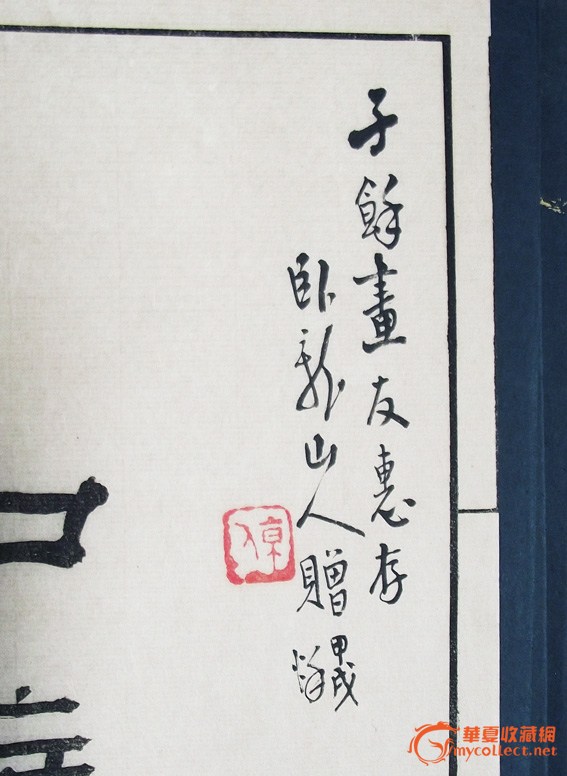 子餘畫友惠存
卧龍山人贈
甲戌
華夏收藏網
mycollect.net